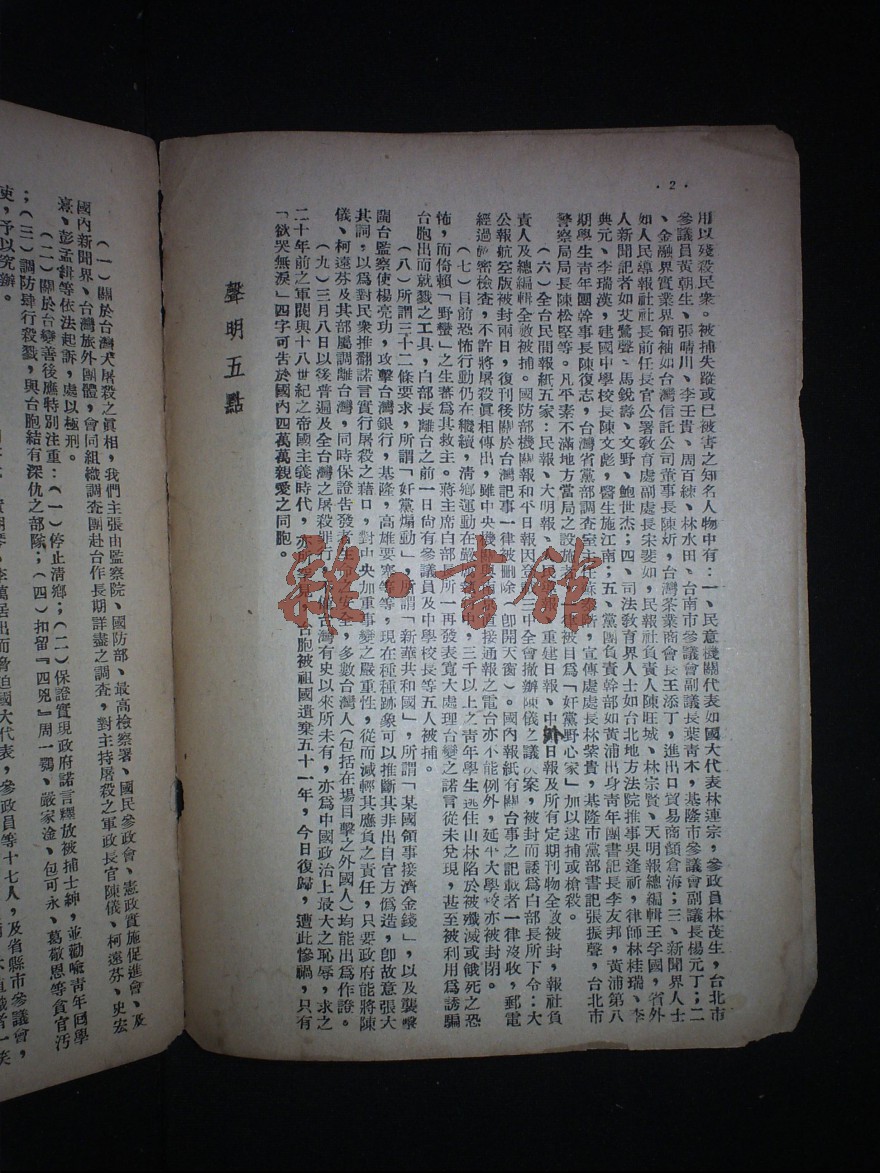 ·2·
用以殘殺民衆。被捕失蹤或已被害之知名人物中有：一、民意機關代表如國大代表林連宗，參政員林茂生，台北市
參議員黃朝生、張晴川、李王貴、周百練、林水田、台南市參議會副議長葉青木，基隆市參議會副議長楊元丁；二
、金融界實業界領袖如台灣信託公司董事長陳炘，台灣茶業商會長王添丁，進出口貿易商顏倉海；三、新聞界人士
如人民導報社社長前任長官公署教育處副處長宋斐如，民報社負責人陳旺城、林宗賢、天明報總編輯王孚國，省外
人新聞記者如艾鷺聲、馬銳籌、文野、鮑世杰；四、司法教育界人士如台北地方法院推事吳逢祈，律師林桂瑞、李
典元、李瑞漢，建國中學校長陳文彬，醫生施江南；五、黨團負責幹部如黃浦出身青年團書記長李友邦，黃浦第八
期學生青年團幹事長陳復志，台灣省黨部調查室主任蘇 所，宣傳處處長林紫貴，基隆市黨部書記張振聲，台北市
警察局局長陳松堅等。凡平素不滿地方當局之設施者 一律被目爲「奸黨野心家」加以逮捕或槍殺。
（六）全台民間報紙五家：民報、大明報、 報、重建日報、中外日報及所有定期刊物全 被封，報社負
責人及總編輯全數被捕。國防部機關報和平日報因登 三中全會撤辦陳儀之議 案，被封而諉爲白部長所下令：大
公報航空版被封兩日，復刊後關於台灣記事一律被刪除 卽開天窗）。國內報紙有關台事之記載者一律沒收，郵電
經過 密檢查，不許將屠殺眞相傳出，雖中央機關與 直接通報之電台亦不能例外，延平大學校亦被封閉。
（七）目前恐怖行動仍在繼續，清鄉運動在嚴 執 中，三千以上之靑年學生逃住山林陷於被殲滅或餓死之恐
怖，而倚賴「野蠻」之生蕃爲其救主。蔣主席白部長 所一再發表寬大處理台變之諾言從未兌現，甚至被利用爲誘騙
台胞出而就戮之工具，白部長離台之前一日尙有參議員及中學校長等五人被捕。
（八）所謂三十二條要求，所謂「奸黨煽動」，所謂「新華共和國」，所謂「某國領事接濟金錢」，以及襲擊
閩台監察使楊亮功，攻擊台灣銀行，基隆，高雄要塞等等，現在種種跡象可以推斷其非出自官方僞造，卽故意張大
其詞，以爲對民衆推翻諾言實行屠殺之藉口，對中央加重事變之嚴重性，從而減輕其應負之責任，只要政府能將陳
儀、柯遠芬及其部屬調離台灣，同時保證告發者生命之安全，多數台灣人（包括在塲目擊之外國人）均能出爲作證。
（九）三月八日以後普遍及全台灣之屠殺罪行， 台灣有史以來所未有，亦爲中國政治上最大之恥辱，求之
二十年前之軍閥與十八世紀之帝國主義時代，亦所 見 台胞被祖國遺棄五十一年，今日復歸，遭此慘禍，只有
「欲哭無淚」四字可告於國內四萬萬親愛之同胞。
聲明五點
（一）關於台灣大屠殺之眞相，我們主張由監察院、國防部、最高檢察署、國民參政會、憲政實施促進會、及
國內新聞界、台灣旅外團體，會同組織調查團赴台作長期詳盡之調查，對主持屠殺之軍政長官陳儀、柯遠芬、史宏
熹、彭孟緝等依法起訴，處以極刑。
（二）關於台變善後應特別注重：（一）停止清鄉；（二）保證實現政府諾言釋放被捕士紳，並勸喩靑年回學
；（三）調防肆行殺戮，與台胞結有深仇之部隊；（四）扣留『四兇』周一鶚、嚴家淦、包可永、葛敬恩等貪官汚
吏，予以究辦。
李萬居出而脅迫國大代表，參政員等十七人，及省縣市參議會，
雜·書館